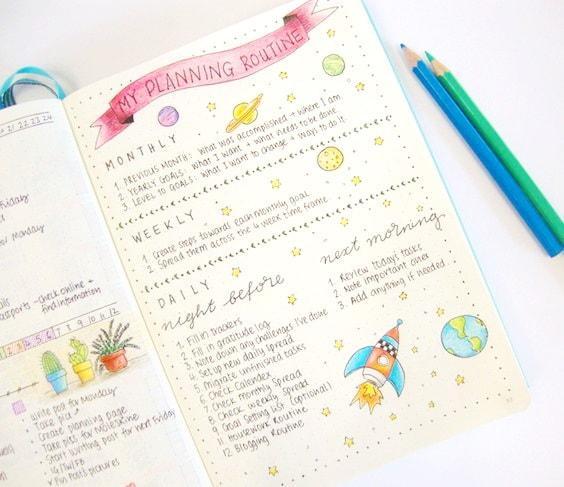 MY PLANNING ROUTINE
MONTHLY
1. PREVIOUS MONTH: what was accomplished + where I am
2. YEARLY GOALS: what I want + what needs to be done
3. LEVEL 10 GOALS: what I want to change + ways to do it
WEEKLY
1. Create steps towards each monthly goal
2. Spread them across the 4 week time frame
DAILY
night before
1. Fill in trackers
2. Fill in gratitude log
3. Write down any challenges I've done
4. Set up new daily spread
5. Migrate unfinished tasks
6. Check Calendex
7. Check monthly Spread
8. Check weekly Spread
9. Goal Setting List (optional)
11. Housework Routine
12. Blogging Routine
next morning
1. Review todays tasks
2. Note important ones
3. Add anything if needed
21 22 23 24
Friday
Monday
- check online +
find information
1 2 3 4 5 6 7 8 9 10 11 12
Write post for Monday
Take pics
Create planning page
Take pics for Moleskine
Start writing post for next Friday
IG/TW/FB
Pin Post's pictures